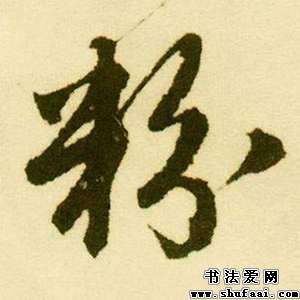 粉
书法爱网
www.shufaai.com